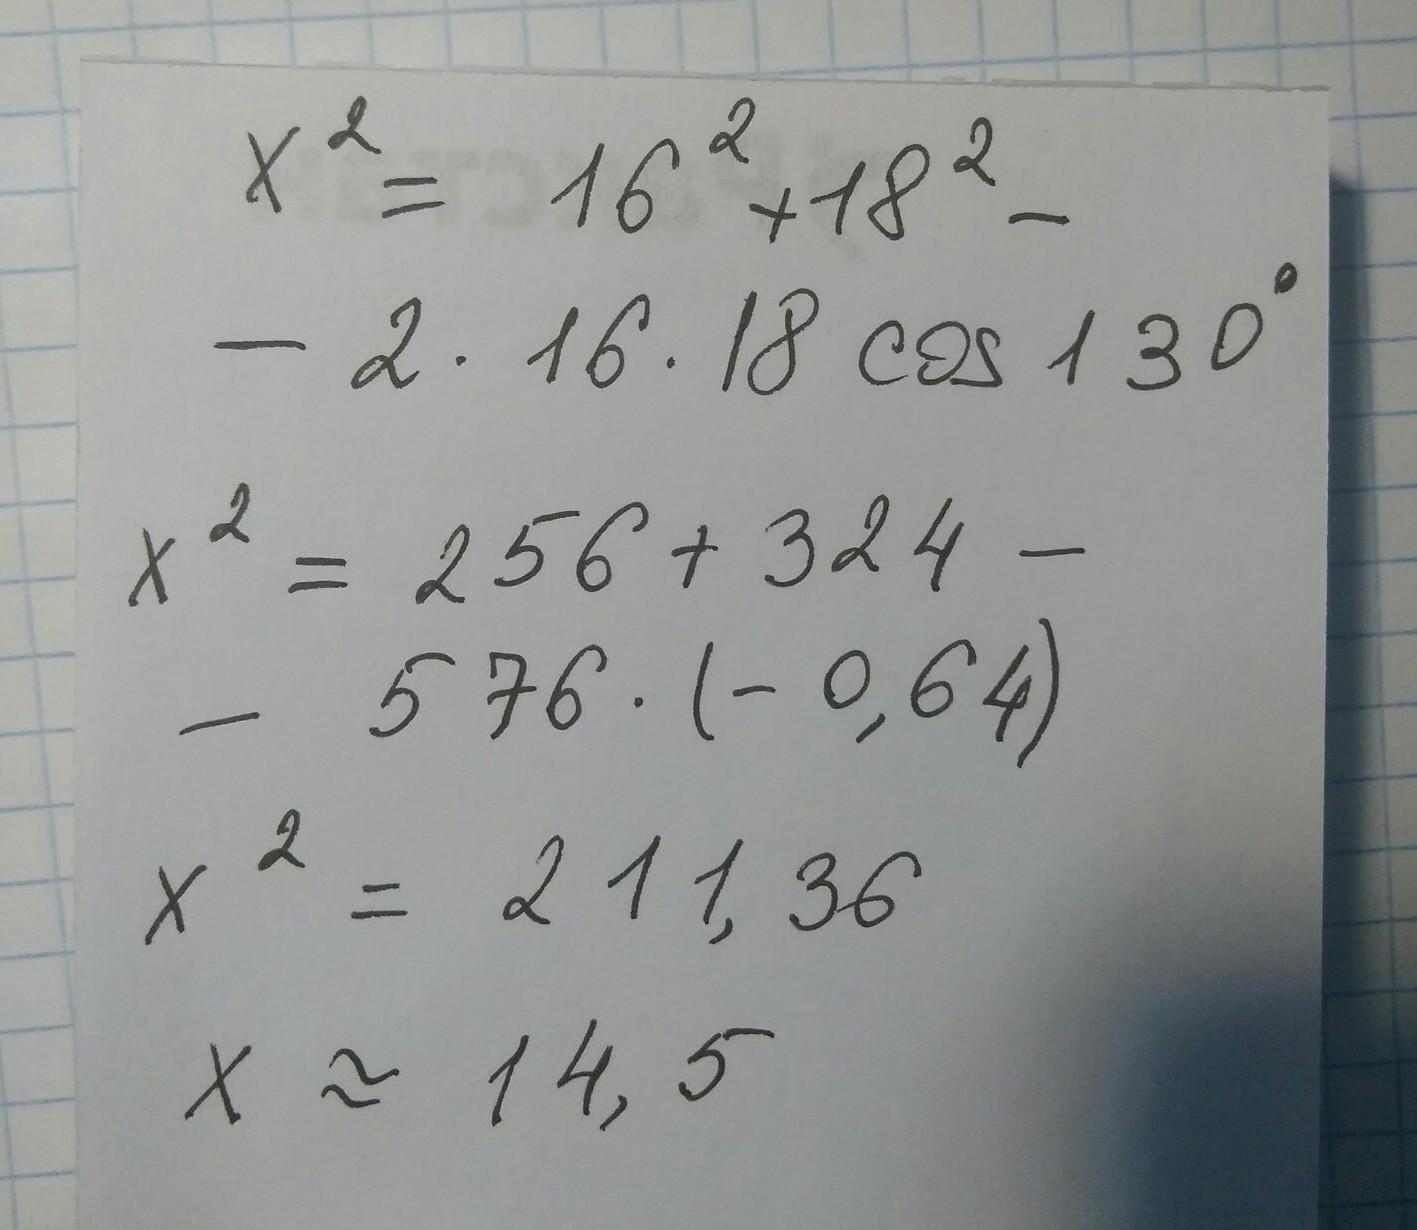 x² = 16² + 18² –
– 2 · 16 · 18 cos 130°
x² = 256 + 324 –
– 576 · (– 0,64)
x² = 211,36
x ≈ 14,5